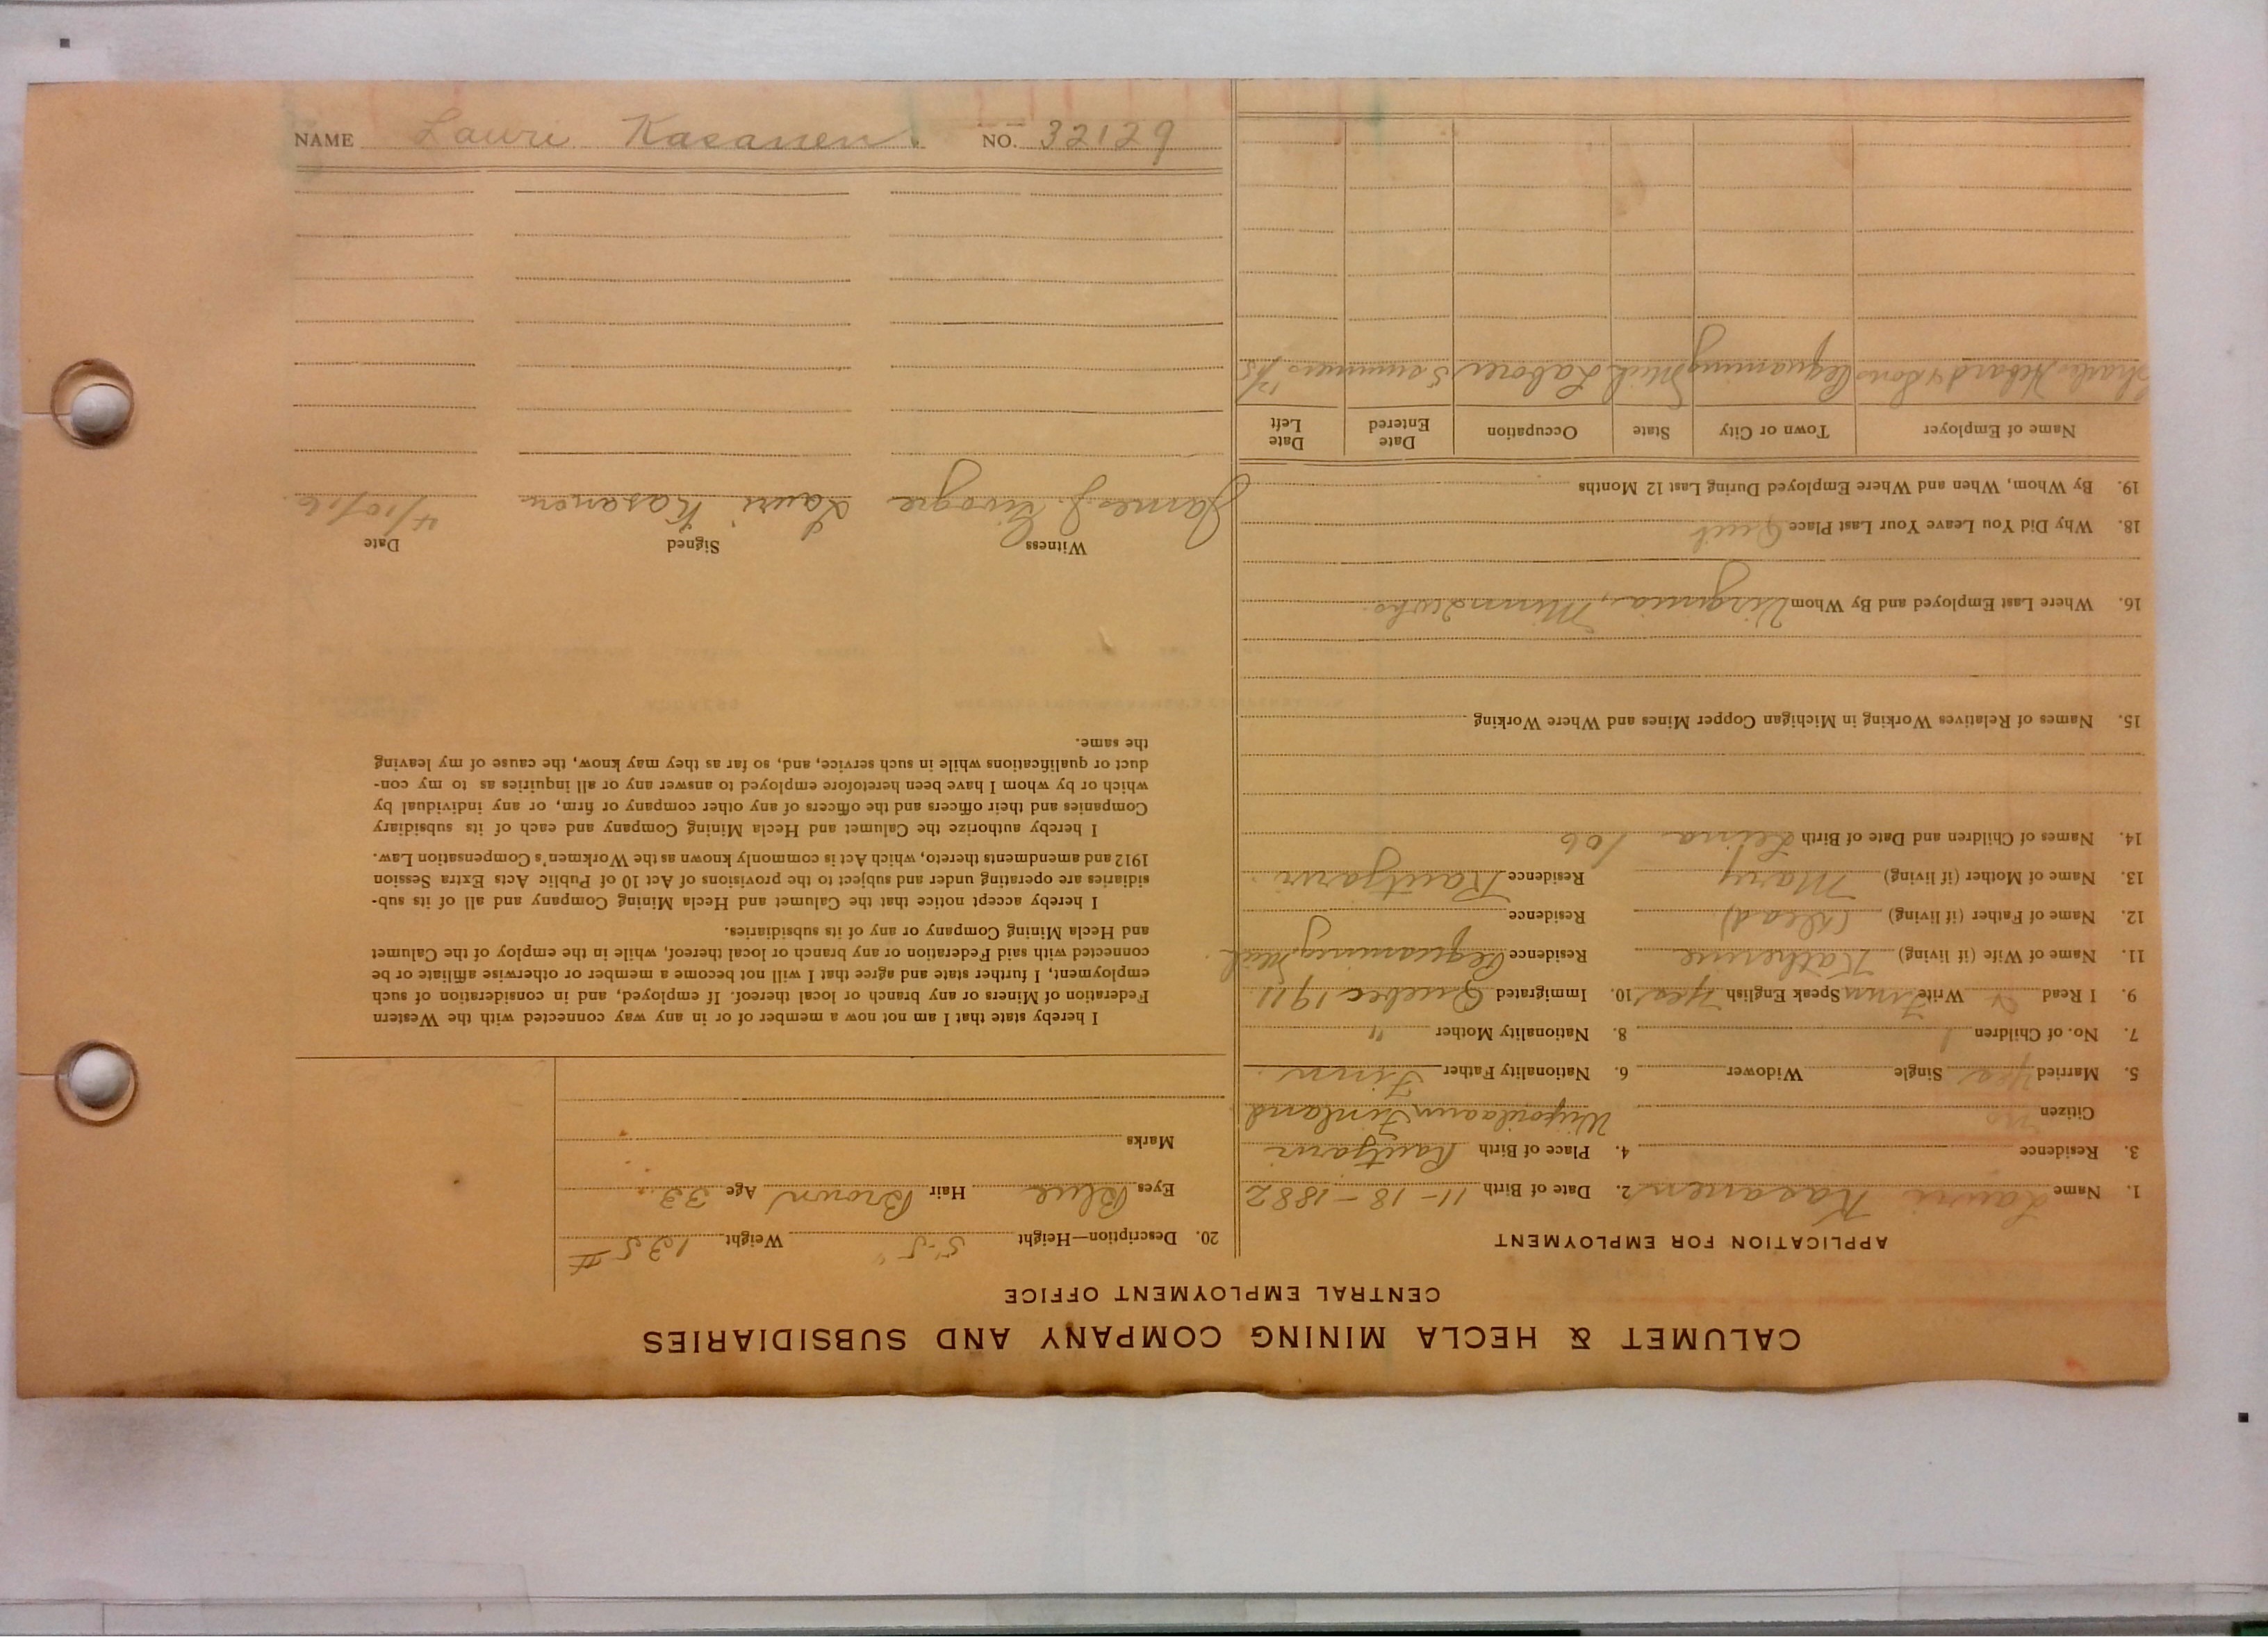 CALUMET & HECLA MINING COMPANY AND SUBSIDIARIES
CENTRAL EMPLOYMENT OFFICE
APPLICATION FOR EMPLOYMENT
1. Name Lauri Kasanen 2. Date of Birth 11-18-1882
3. Residence 4. Place of Birth Rautjarvi
Citizen no Finland
5. Married Yes Single Widower 6. Nationality Father Finn
7. No. of Children 1 8. Nationality Mother "
9. I Read & Write Finn Speak English Yes 10. Immigrated Quebec 1911
11. Name of Wife (if living) Katherine Residence Pequaming Mich
12. Name of Father (if living) (dead) Residence
13. Name of Mother (if living) Mary Residence Rautjarvi
14. Names of Children and Date of Birth Leina 106
15. Names of Relatives Working in Michigan Copper Mines and Where Working
16. Where Last Employed and By Whom Virginia, Minn
18. Why Did You Leave Your Last Place Quit
19. By Whom, When and Where Employed During Last 12 Months
Name of Employer Town or City State Occupation Date Entered Date Left
Charles Hebard & Sons Pequaming Mich Laborer 5 summers
20. Description—Height 5-5" Weight 135 #
Eyes Blue Hair Brown Age 33
Marks
I hereby state that I am not now a member of or in any way connected with the Western
Federation of Miners or any branch or local thereof. If employed, and in consideration of such
employment, I further state and agree that I will not become a member or otherwise affiliate or be
connected with said Federation or any branch or local thereof, while in the employ of the Calumet
and Hecla Mining Company or any of its subsidiaries.
I hereby accept notice that the Calumet and Hecla Mining Company and all of its sub-
sidiaries are operating under and subject to the provisions of Act 10 of Public Acts Extra Session
1912 and amendments thereto, which Act is commonly known as the Workmen's Compensation Law.
I hereby authorize the Calumet and Hecla Mining Company and each of its subsidiary
Companies and their officers and the officers of any other company or firm, or any individual by
which or by whom I have been heretofore employed to answer any or all inquiries as to my con-
duct or qualifications while in such service, and, so far as they may know, the cause of my leaving
the same.
Witness Signed Date
James J. Lauri Kasanen 4/10/16
NAME Lauri Kasanen. NO. 32129